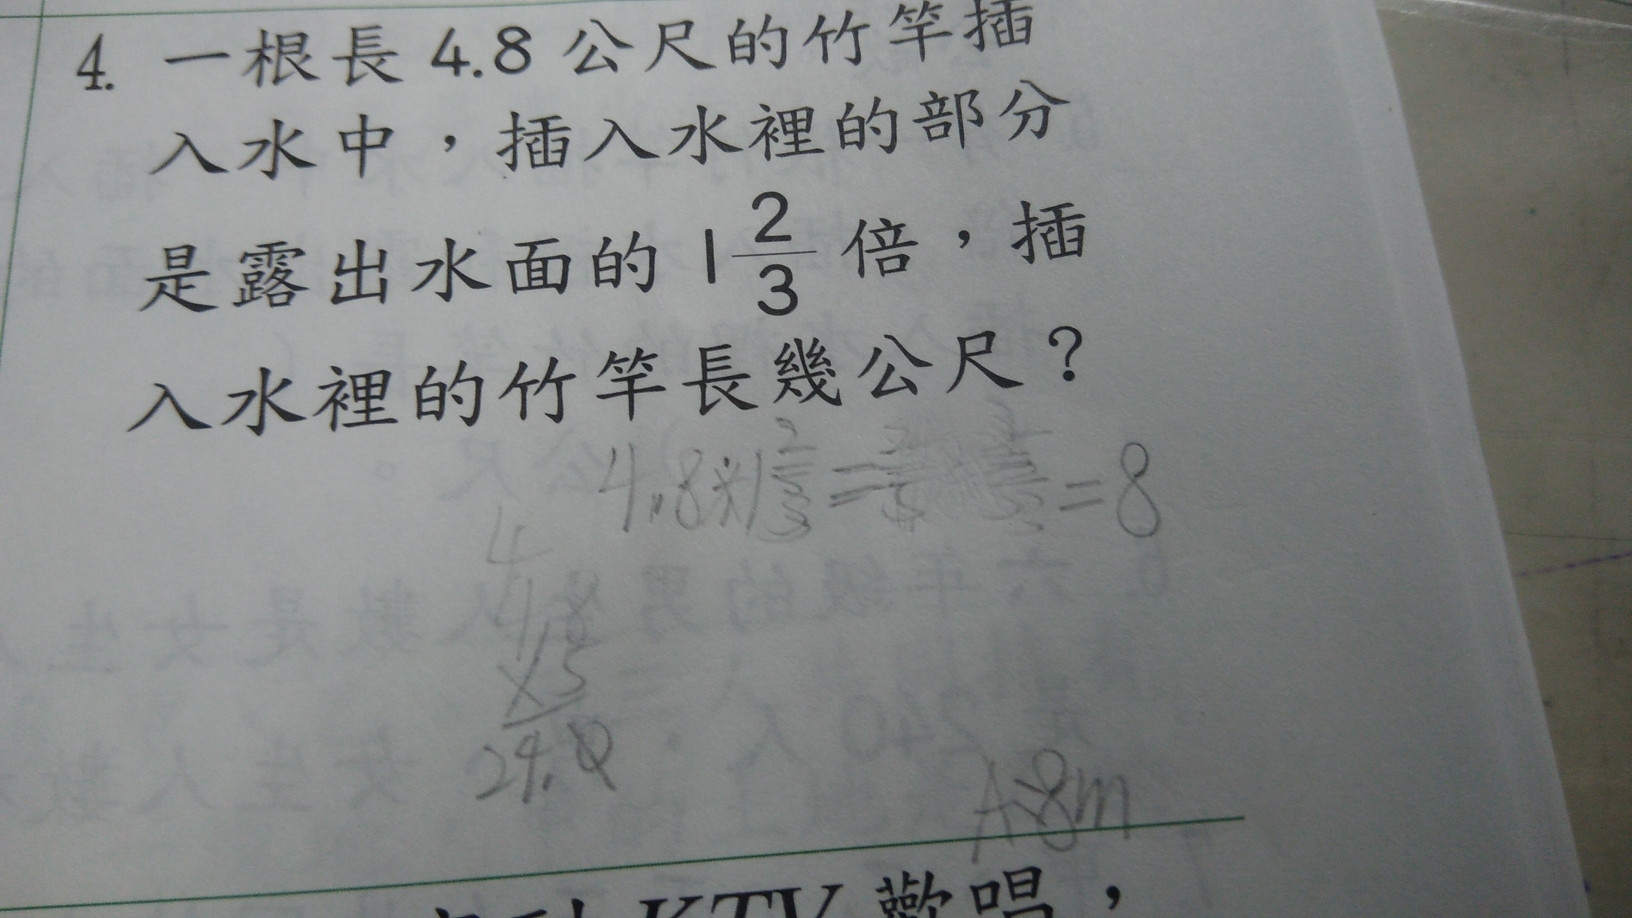 4. 一根長 4.8 公尺的竹竿插
入水中，插入水裡的部分
是露出水面的 1 2/3 倍，插
入水裡的竹竿長幾公尺？
= 8
4
4.8
×5
24.0
A:8m
KTV 歡唱，